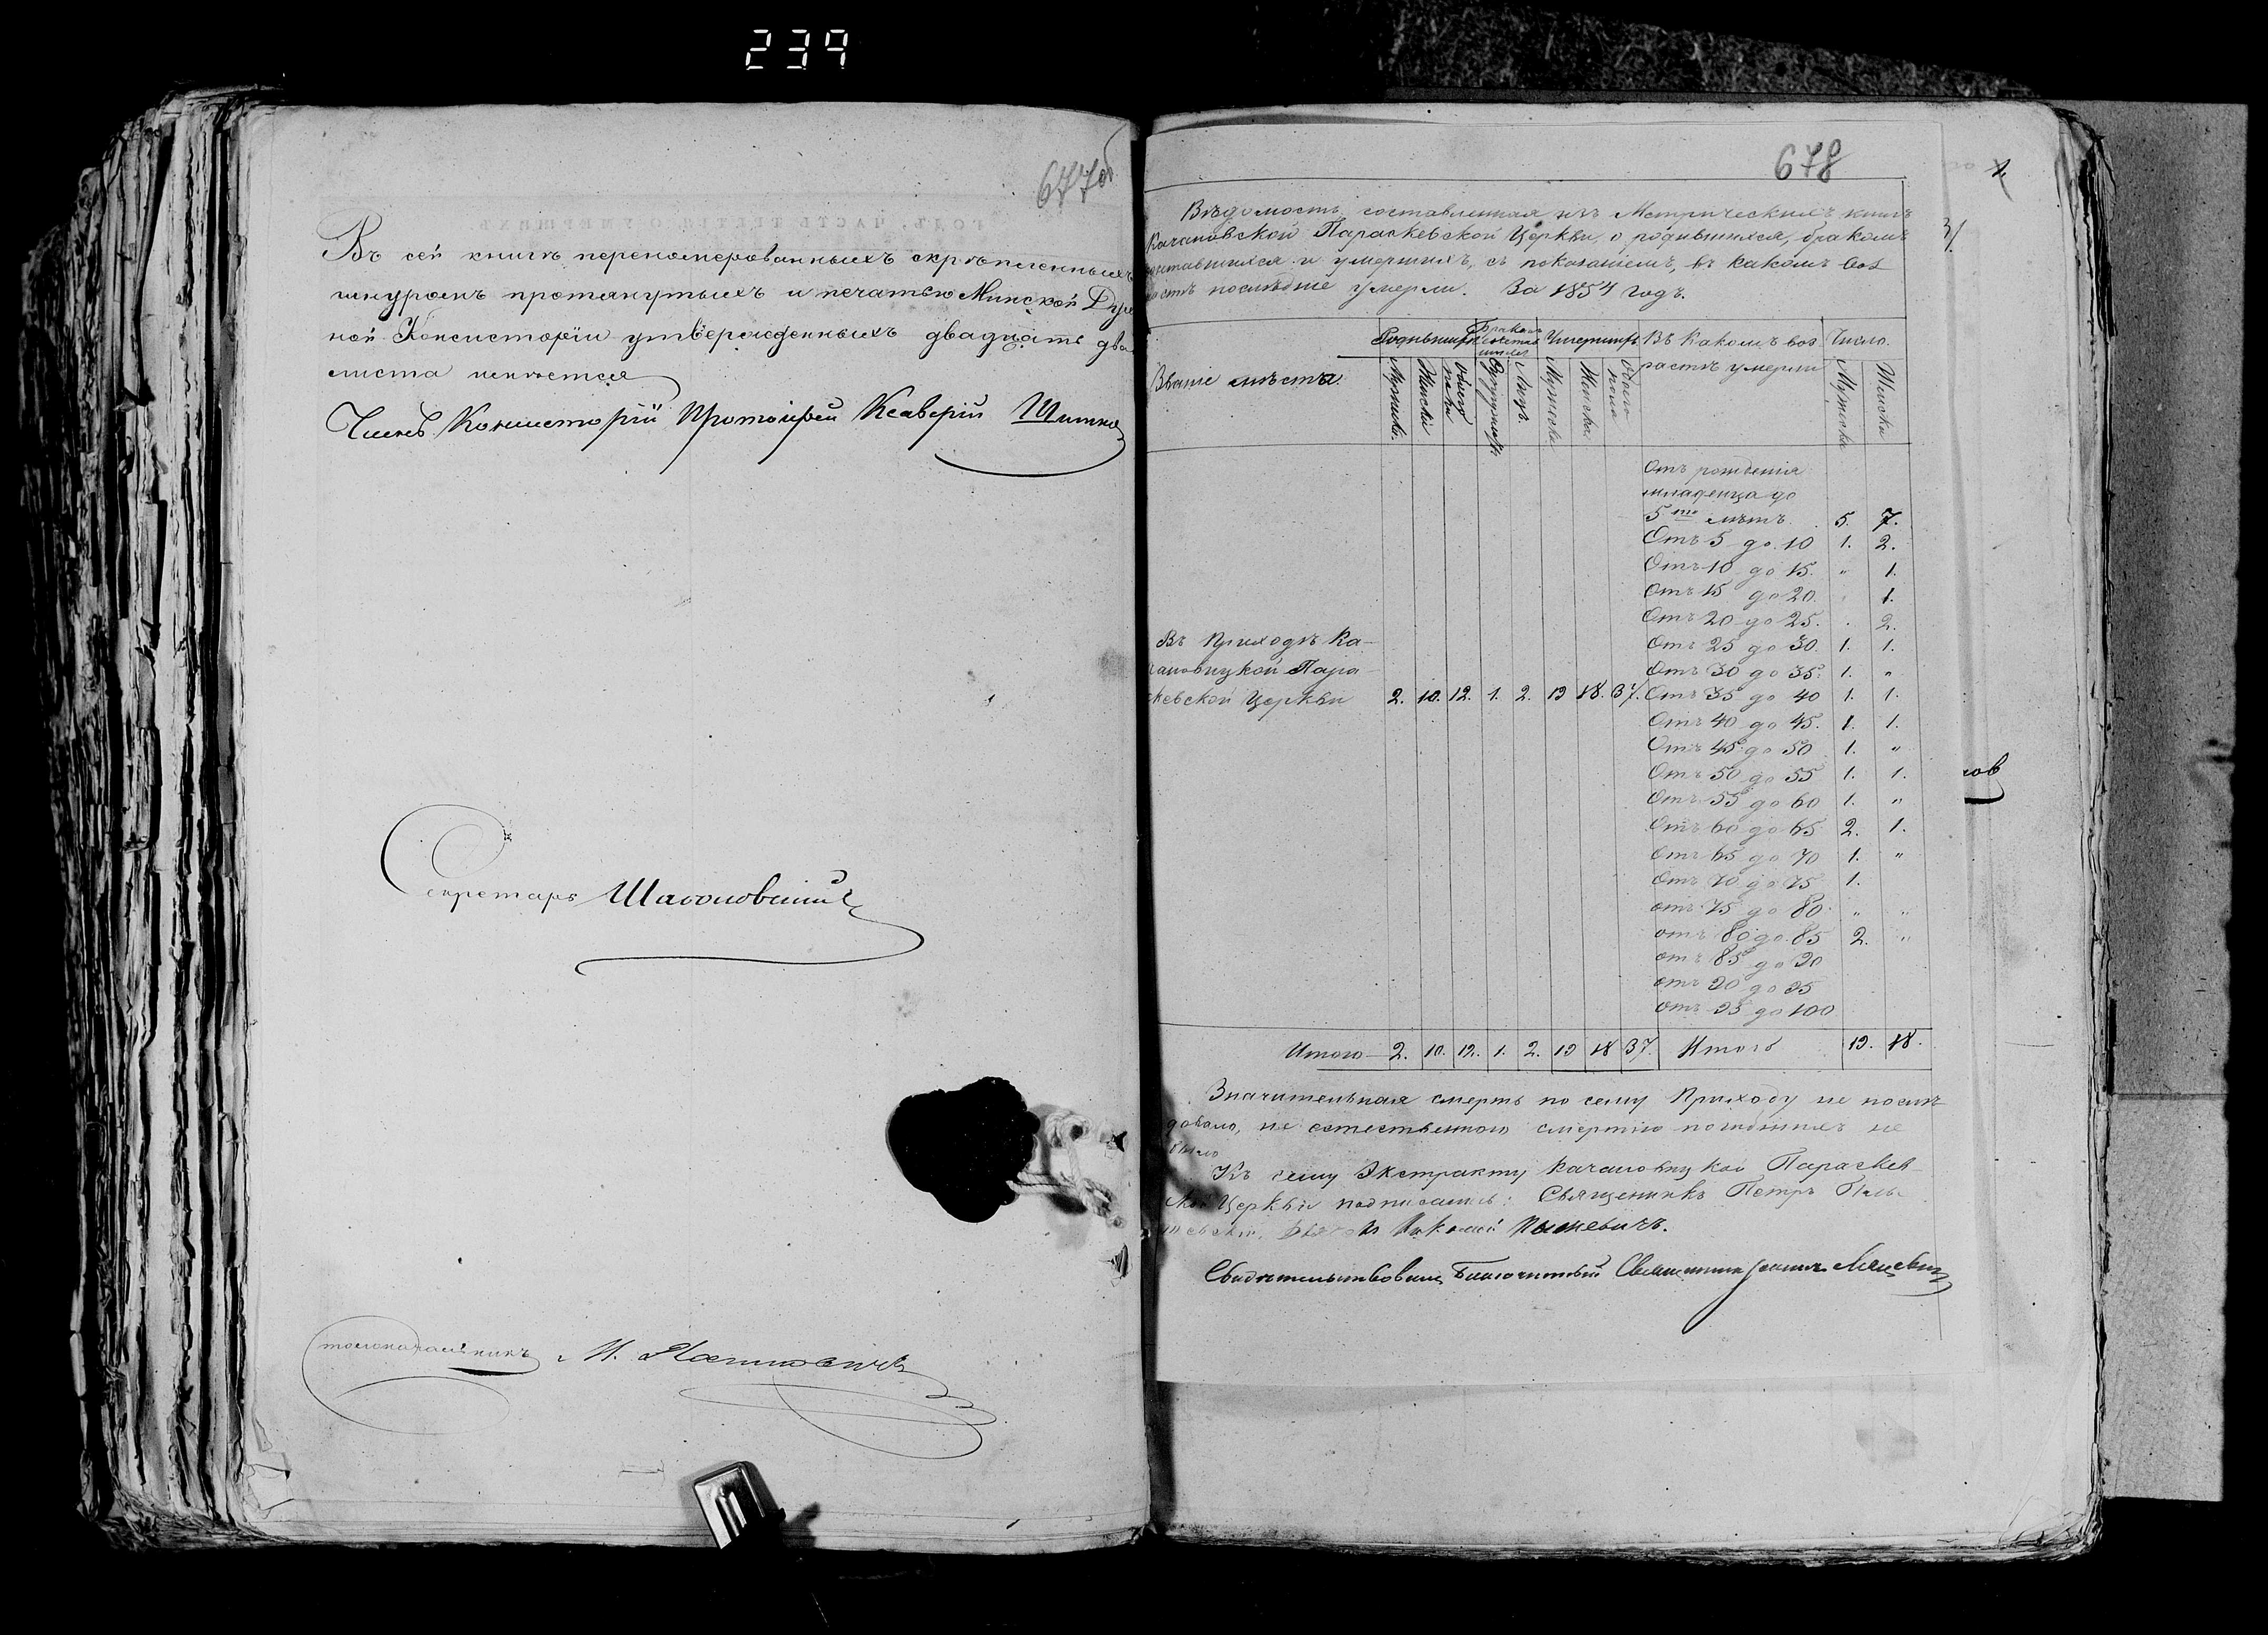 239
677об
Въ сей книгѣ перенумерованныхъ скрѣпленныхъ
шнуромъ протянутыхъ и печатью Минской Дух
ной Консисторіи утвержденныхъ двадцать два
листа имѣется
Членъ Консисторіи Протоіерей Ксаверій
Секретарь
Столоначальникъ М.
678
Вѣдомость, составленная изъ Метрическихъ книгъ
Качановской Параскевской Церкви, о родившихся, бракомъ
сочетавшихся и умершихъ, съ показаніемъ, въ какомъ воз
растѣ послѣдніе умерли. За 1854 годъ.
Званіе мѣста
Родившихся
Бракомъ сочетавшихся
Умершихъ
Въ Какомъ воз
растѣ умерли
Число.
Мужска.
Женскій
Обоего пола
Супружествъ
Лицъ.
Мужеска
Женска
Обоего пола
Мужеска
Женска
Отъ рожденія
младенца до
5ти лѣтъ. 5. 7.
Отъ 5 до 10 1. 2.
Отъ 10 до 15. " 1.
Отъ 15 до 20. 1.
Отъ 20 до 25. . 2.
Отъ 25 до 30. 1. 1.
Отъ 30 до 35. 1. "
Въ Приходѣ Ка-
чановицкой Пара-
скевской Церкви 2. 10. 12. 1. 2. 19 18. 37. Отъ 35 до 40 1. 1.
Отъ 40 до 45. 1. 1.
Отъ 45 до 50 1. "
Отъ 50 до 55 1. 1.
Отъ 55 до 60 1. "
Отъ 60 до 65 2. 1.
Отъ 65 до 70 1. "
Отъ 70 до 75 1.
отъ 75 до 80. " "
отъ 80 до 85 2. "
отъ 85 до 90
отъ 90 до 95
отъ 95 до 100
Итого 2. 10. 12. 1. 2. 19 18 37. Итого 19. 18.
Значительная смерть по сему Приходу не послѣ
довало, не естественною смертію погибшихъ не
было
Къ сему Экстракту Качановицкой Параскев-
ской Церкви подписались: Священникъ Петръ
Николай
Свидѣтельствовалъ Благочинный Священникъ